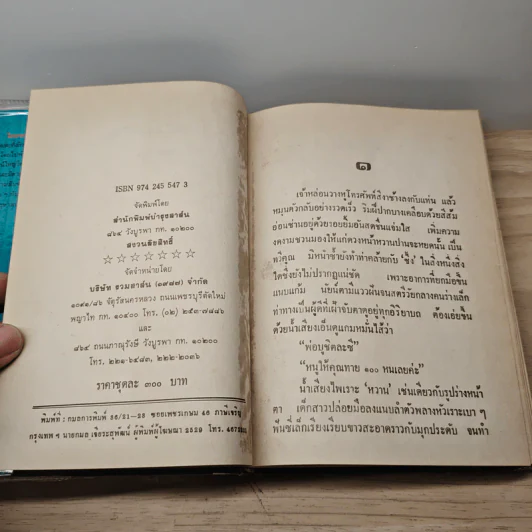 ISBN 974 245 547 3
จัดพิมพ์โดย
สำนักพิมพ์บำรุงสาส์น
๘๖๔ วังบูรพา กท. ๑๐๒๐๐
สงวนลิขสิทธิ์
จัดจำหน่ายโดย
บริษัท รวมสาส์น (๑๙๗๗) จำกัด
พญาไท กท. ๑๐๔๐๐ โทร. (๐๒)
และ
๘๖๔ ถนนภาณุรังษี วังบูรพา กท. ๑๐๒๐๐
โทร. ๒๒๑-๖๔๘๓, ๒๒๒-๒๐๓๖
ราคาชุดละ ๓๐๐ บาท
พิมพ์ที่ : กมลการพิมพ์ ซอยเพชรเกษม 46 ภาษีเจริญ
กรุงเทพ ฯ นายกมล ผู้พิมพ์ผู้โฆษณา 2529 โทร.
๑
เจ้าหล่อนวางหูโทรศัพท์สีงาช้างลงกับแท่น แล้ว
หมุนตัวกลับอย่างรวดเร็ว ริมฝีปากบางเคลือบด้วยสีส้ม
อ่อนซ่านอยู่ด้วยรอยยิ้มอันสดชื่นแจ่มใส เพิ่มความ
งดงามชวนมองให้แก่ดวงหน้าหวานปานจะหยดนั้น เป็น
ทวีคูณ มิหนำซ้ำยังทำท่าคล้ายกับ ‘ซึ้ง’ ในสิ่งหนึ่งสิ่ง
ใดซึ่งยังไม่ปรากฏแน่ชัด เพราะอาการที่ยกมือขึ้น
แนบแก้ม
ท่าทางเป็นผู้ดีที่เฝ้าจับตาดูอยู่ทุกอิริยาบถ ต้องเอ่ยขึ้น
ด้วยน้ำเสียงเอ็นดูแกมหมั่นไส้ว่า
“พ่อบูชิตละซี”
“หนูให้คุณทาย ๑๐๐ หนเลยค่ะ”
น้ำเสียงไพเราะ ‘หวาน’ เช่นเดียวกับรูปร่างหน้า
ตา เด็กสาวปล่อยมือลงแนบลำตัวพลางหัวเราะเบา ๆ
ฟันซี่เล็กเรียงเรียบขาวสะอาดราวกับมุกประดับ จนทำ